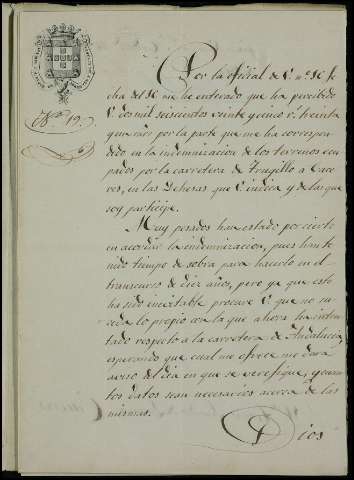 Nº 19.
Por la oficial de V. nº 36 fe
cha del 16 me he enterado que ha percibido
V. dos mil seiscientos veinte y cinco rˢ treinta
y un mrs por la parte que me ha correspon
dido en la indemnizacion de los terrenos ocu
pados por la carretera de Trugillo a Cace
res, en las Dehesas que V. indica y de las que
soy participe.
Muy pesados han estado por cierto
en acordar la indemnizacion, pues han te
nido tiempo de sobra para hacerlo en el
transcurso de diez años, pero ya que esto
ha sido inevitable procure V. que no su
ceda lo propio con la que ahora ha inten
tado respecto a la carretera de Andalucia,
esperando que cual me ofrece me dará
aviso del dia en que se verifique, y cuan
tos datos sean necesarios acerca de las
mismas.
Dios